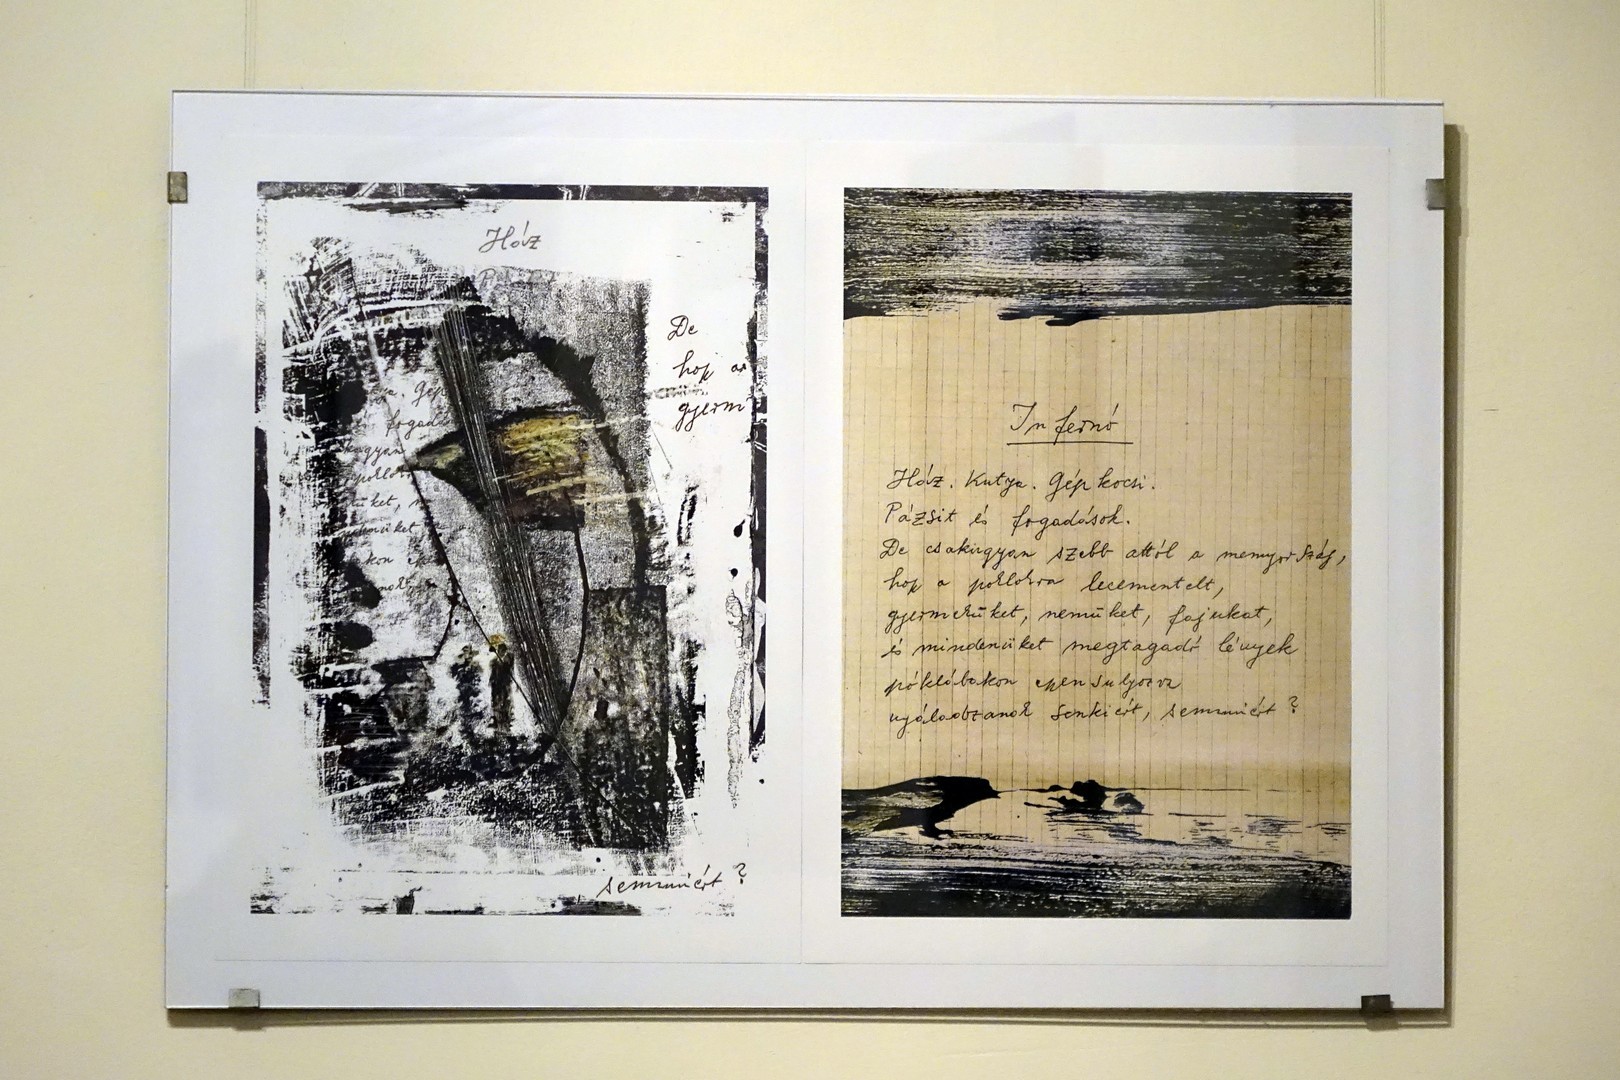 Ház
De
hogy a
gyerm
Gép
fogad
kugyan
poklok
ket,
ket
kon
semmiért ?
Infernó
Ház. Kutya. Gépkocsi.
Pázsit és fogadások.
De csakugyan szebb attól a mennyország,
hogy a poklokra lecementelt,
gyermeküket, nemüket, fajukat,
és mindenüket megtagadó lények
póklábakon egyensulyozva
nyáladzanak senkiért, semmiért ?